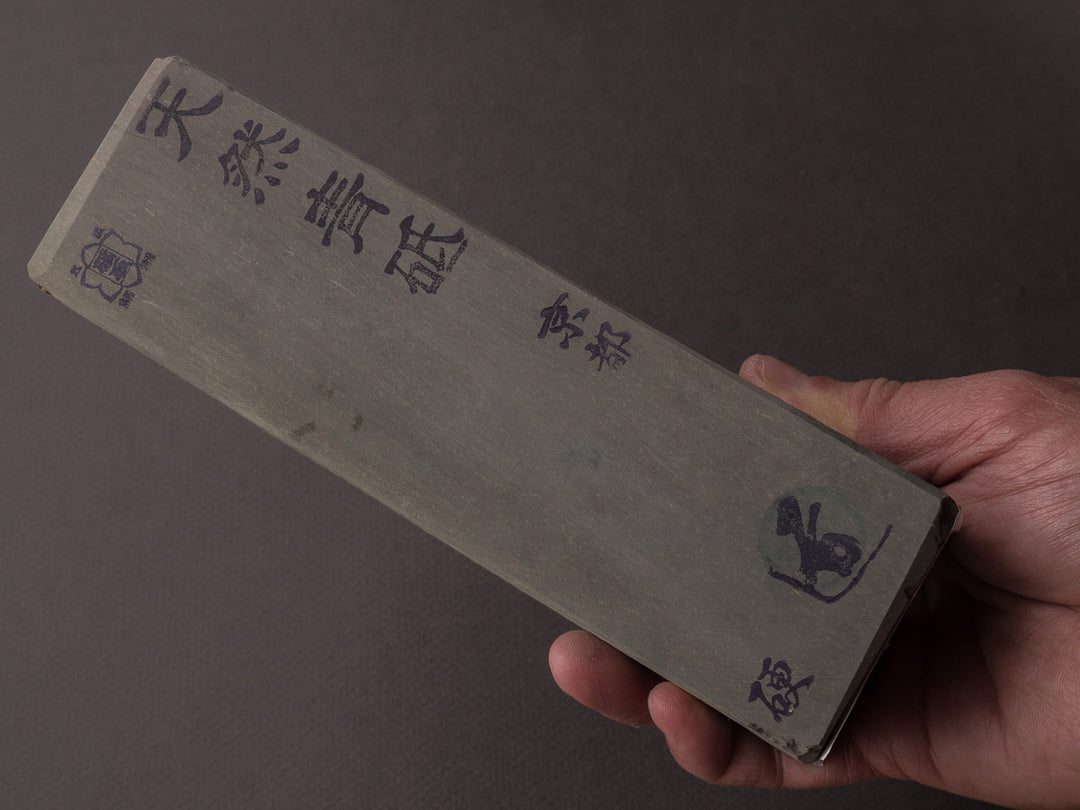 天然青砥
京都
硬